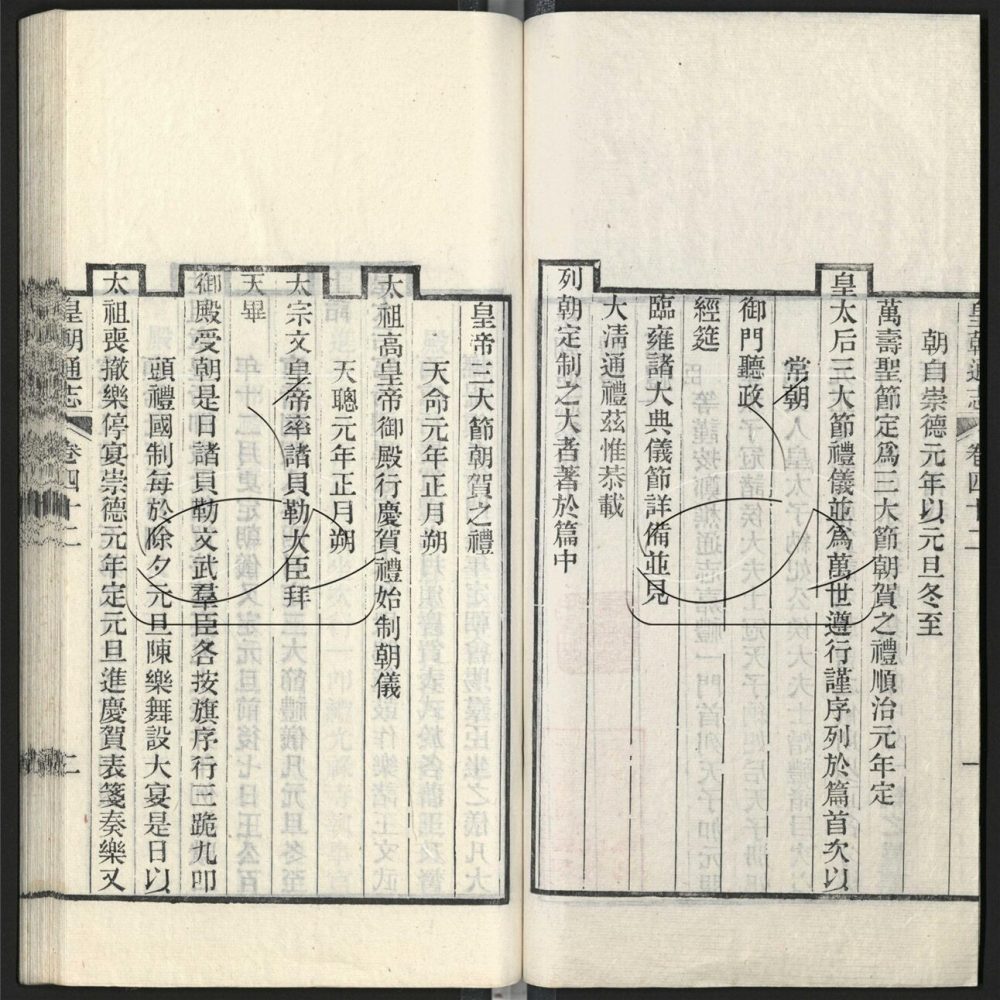 皇朝通志 卷四十二 一
朝自崇德元年以元旦冬至
萬壽聖節定爲三大節朝賀之禮順治元年定
皇太后三大節禮儀並爲萬世遵行謹序列於篇首次以
常朝
御門聽政
經筵
臨雍諸大典儀節詳備並見
大淸通禮茲惟恭載
列朝定制之大者著於篇中
皇帝三大節朝賀之禮
天命元年正月朔
太祖高皇帝御殿行慶賀禮始制朝儀
天聰元年正月朔
太宗文皇帝率諸貝勒大臣拜
天畢
御殿受朝是日諸貝勒文武羣臣各按旗序行三跪九叩
頭禮國制每於除夕元旦陳樂舞設大宴是日以
太祖喪撤樂停宴崇德元年定元旦進慶賀表箋奏樂又
皇朝通志 卷四十二 二